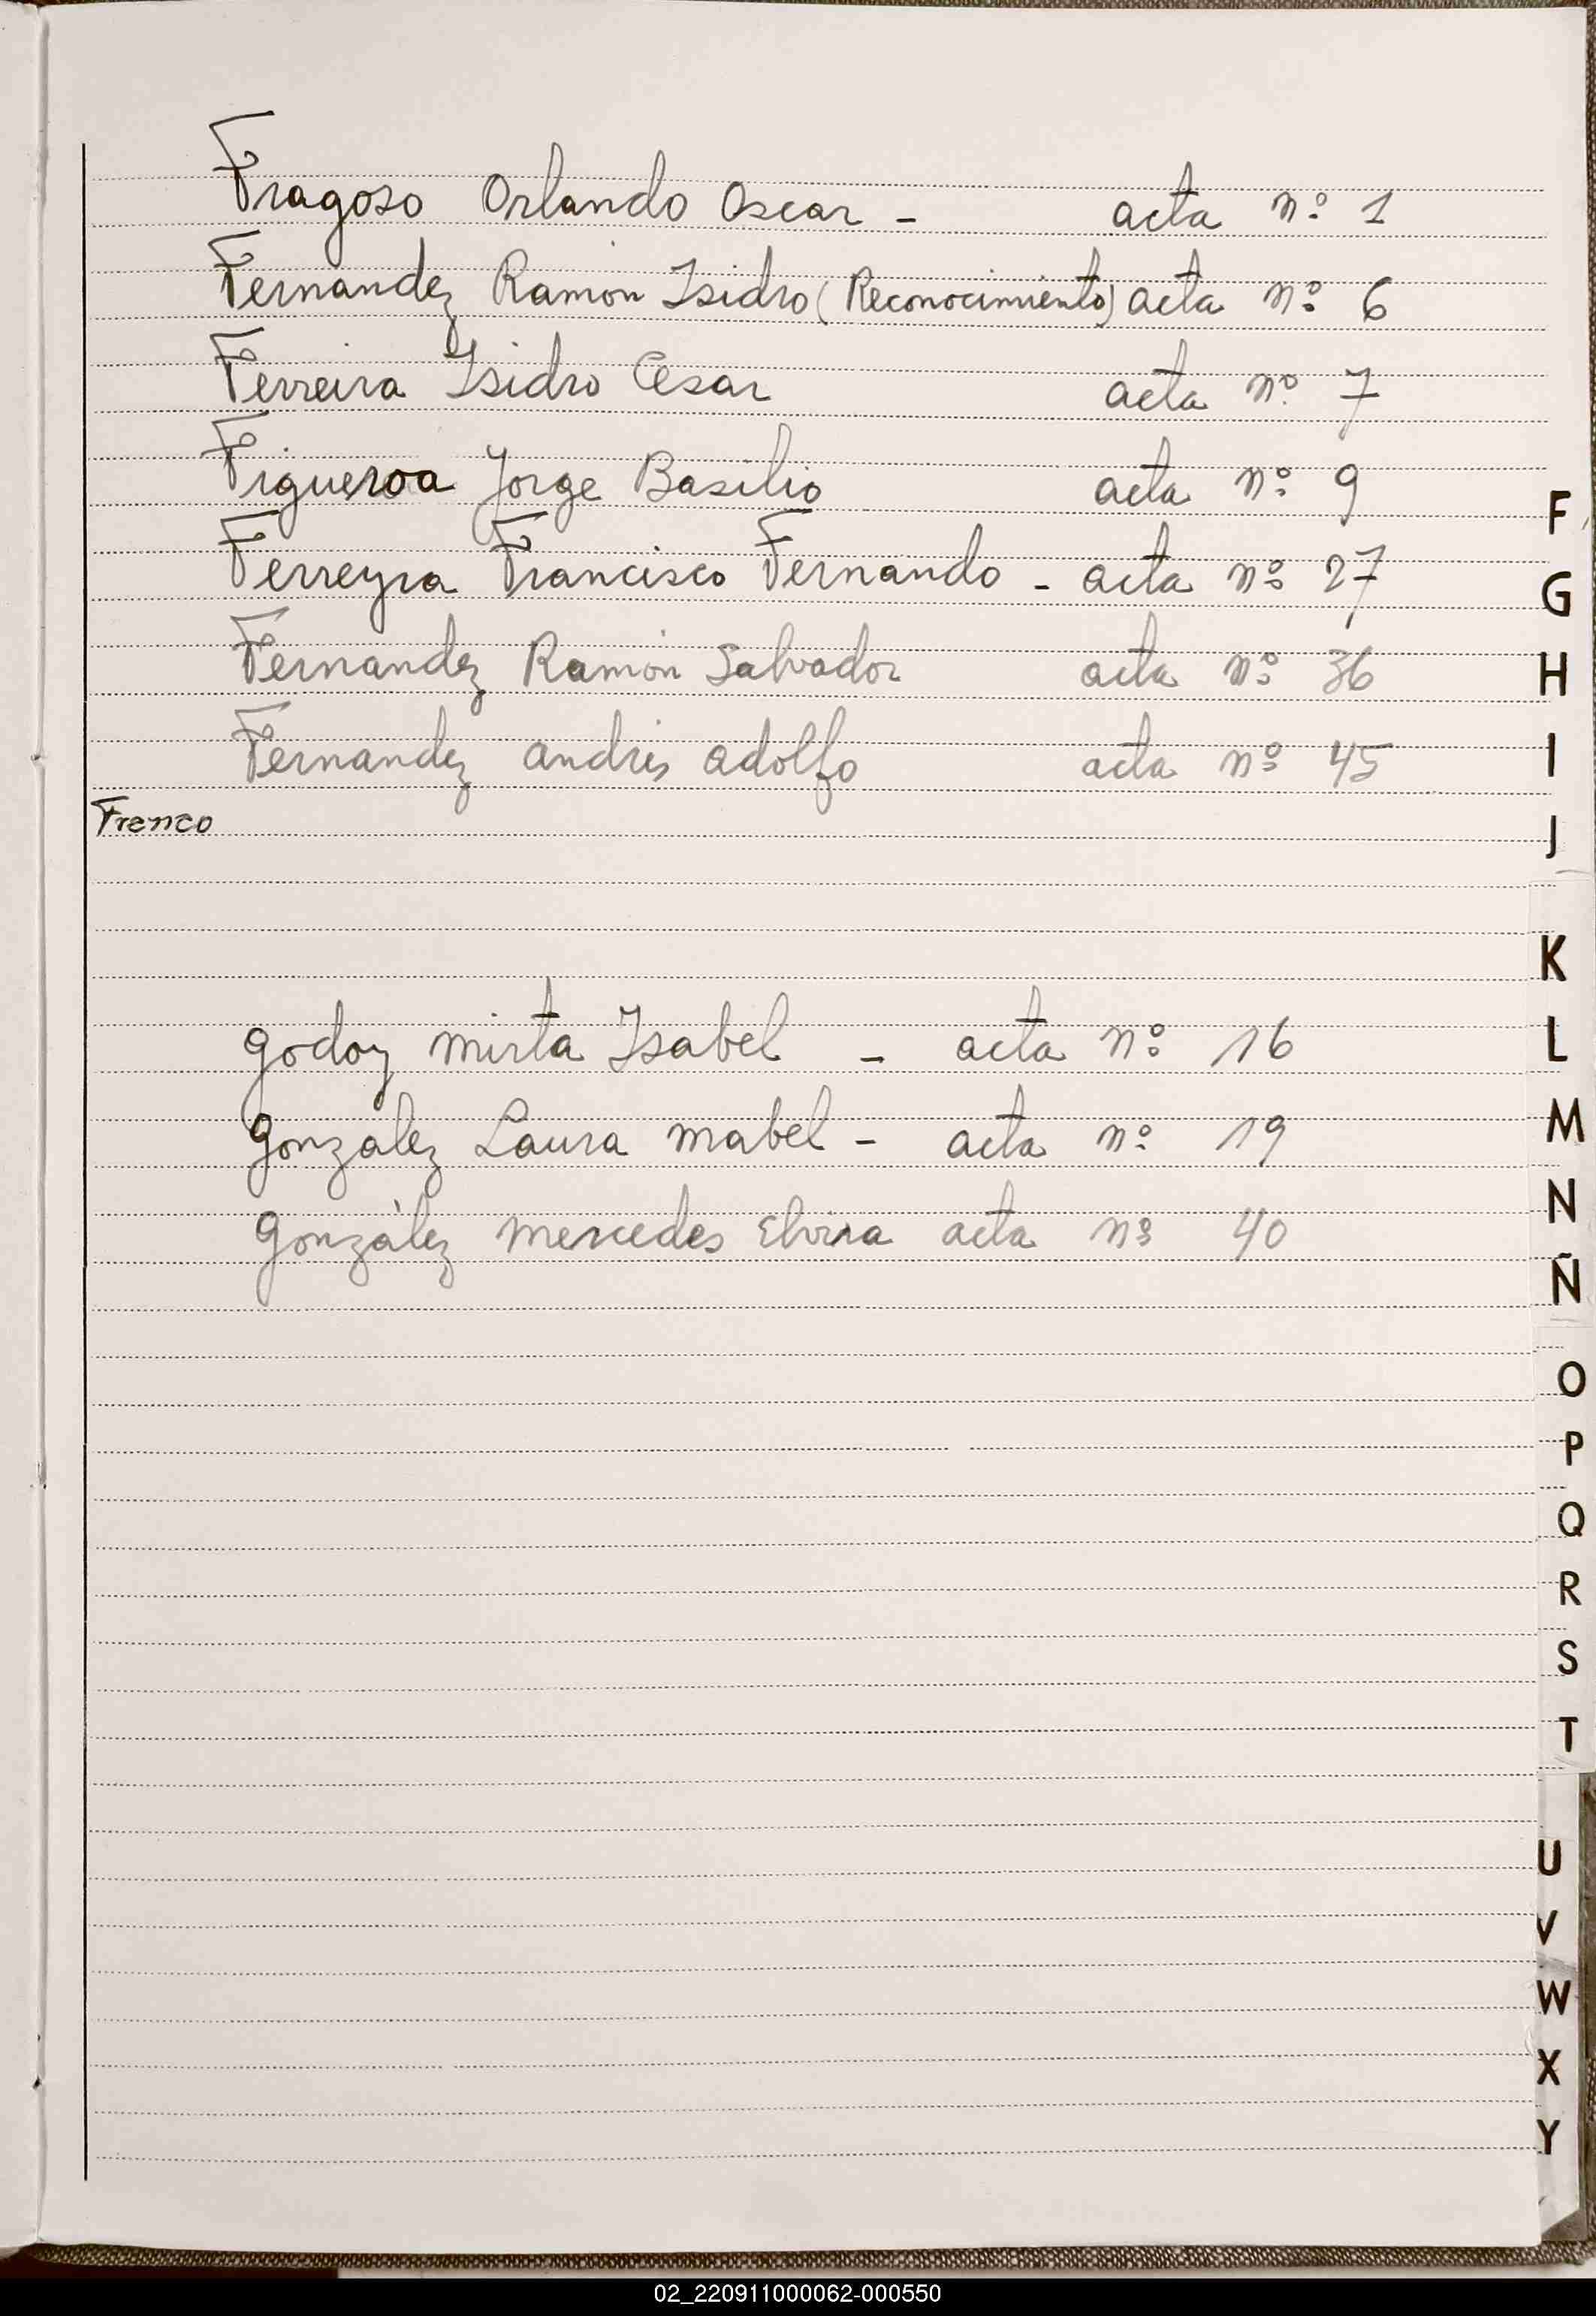 Fragoso Orlando Oscar - acta nº 1
Fernandez Ramon Isidro (Reconocimiento) acta nº 6
Ferreira Isidro Cesar acta nº 7
Figueroa Jorge Basilio acta nº 9
Ferreyra Francisco Fernando - acta nº 27
Fernandez Ramón Salvador acta nº 36
Fernandez andrés adolfo acta nº 45
Franco
godoy mirta Isabel - acta nº 16
gonzalez Laura mabel - acta nº 19
gonzález mercedes Elvira acta nº 40
F
G
H
I
J
K
L
M
N
Ñ
O
P
Q
R
S
T
U
V
W
X
Y
02_220911000062-000550